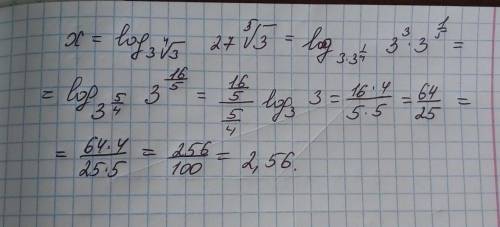 x = log_{3\sqrt[4]{3}} 27\sqrt[5]{3} = log_{3·3^{\frac{1}{4}}} 3^{3}·3^{\frac{1}{5}} =
= log_{3^{\frac{5}{4}}} 3^{\frac{16}{5}} = \frac{\frac{16}{5}}{\frac{5}{4}} log_{3} 3 = \frac{16·4}{5·5} = \frac{64}{25} =
= \frac{64·4}{25·5} = \frac{256}{100} = 2,56.